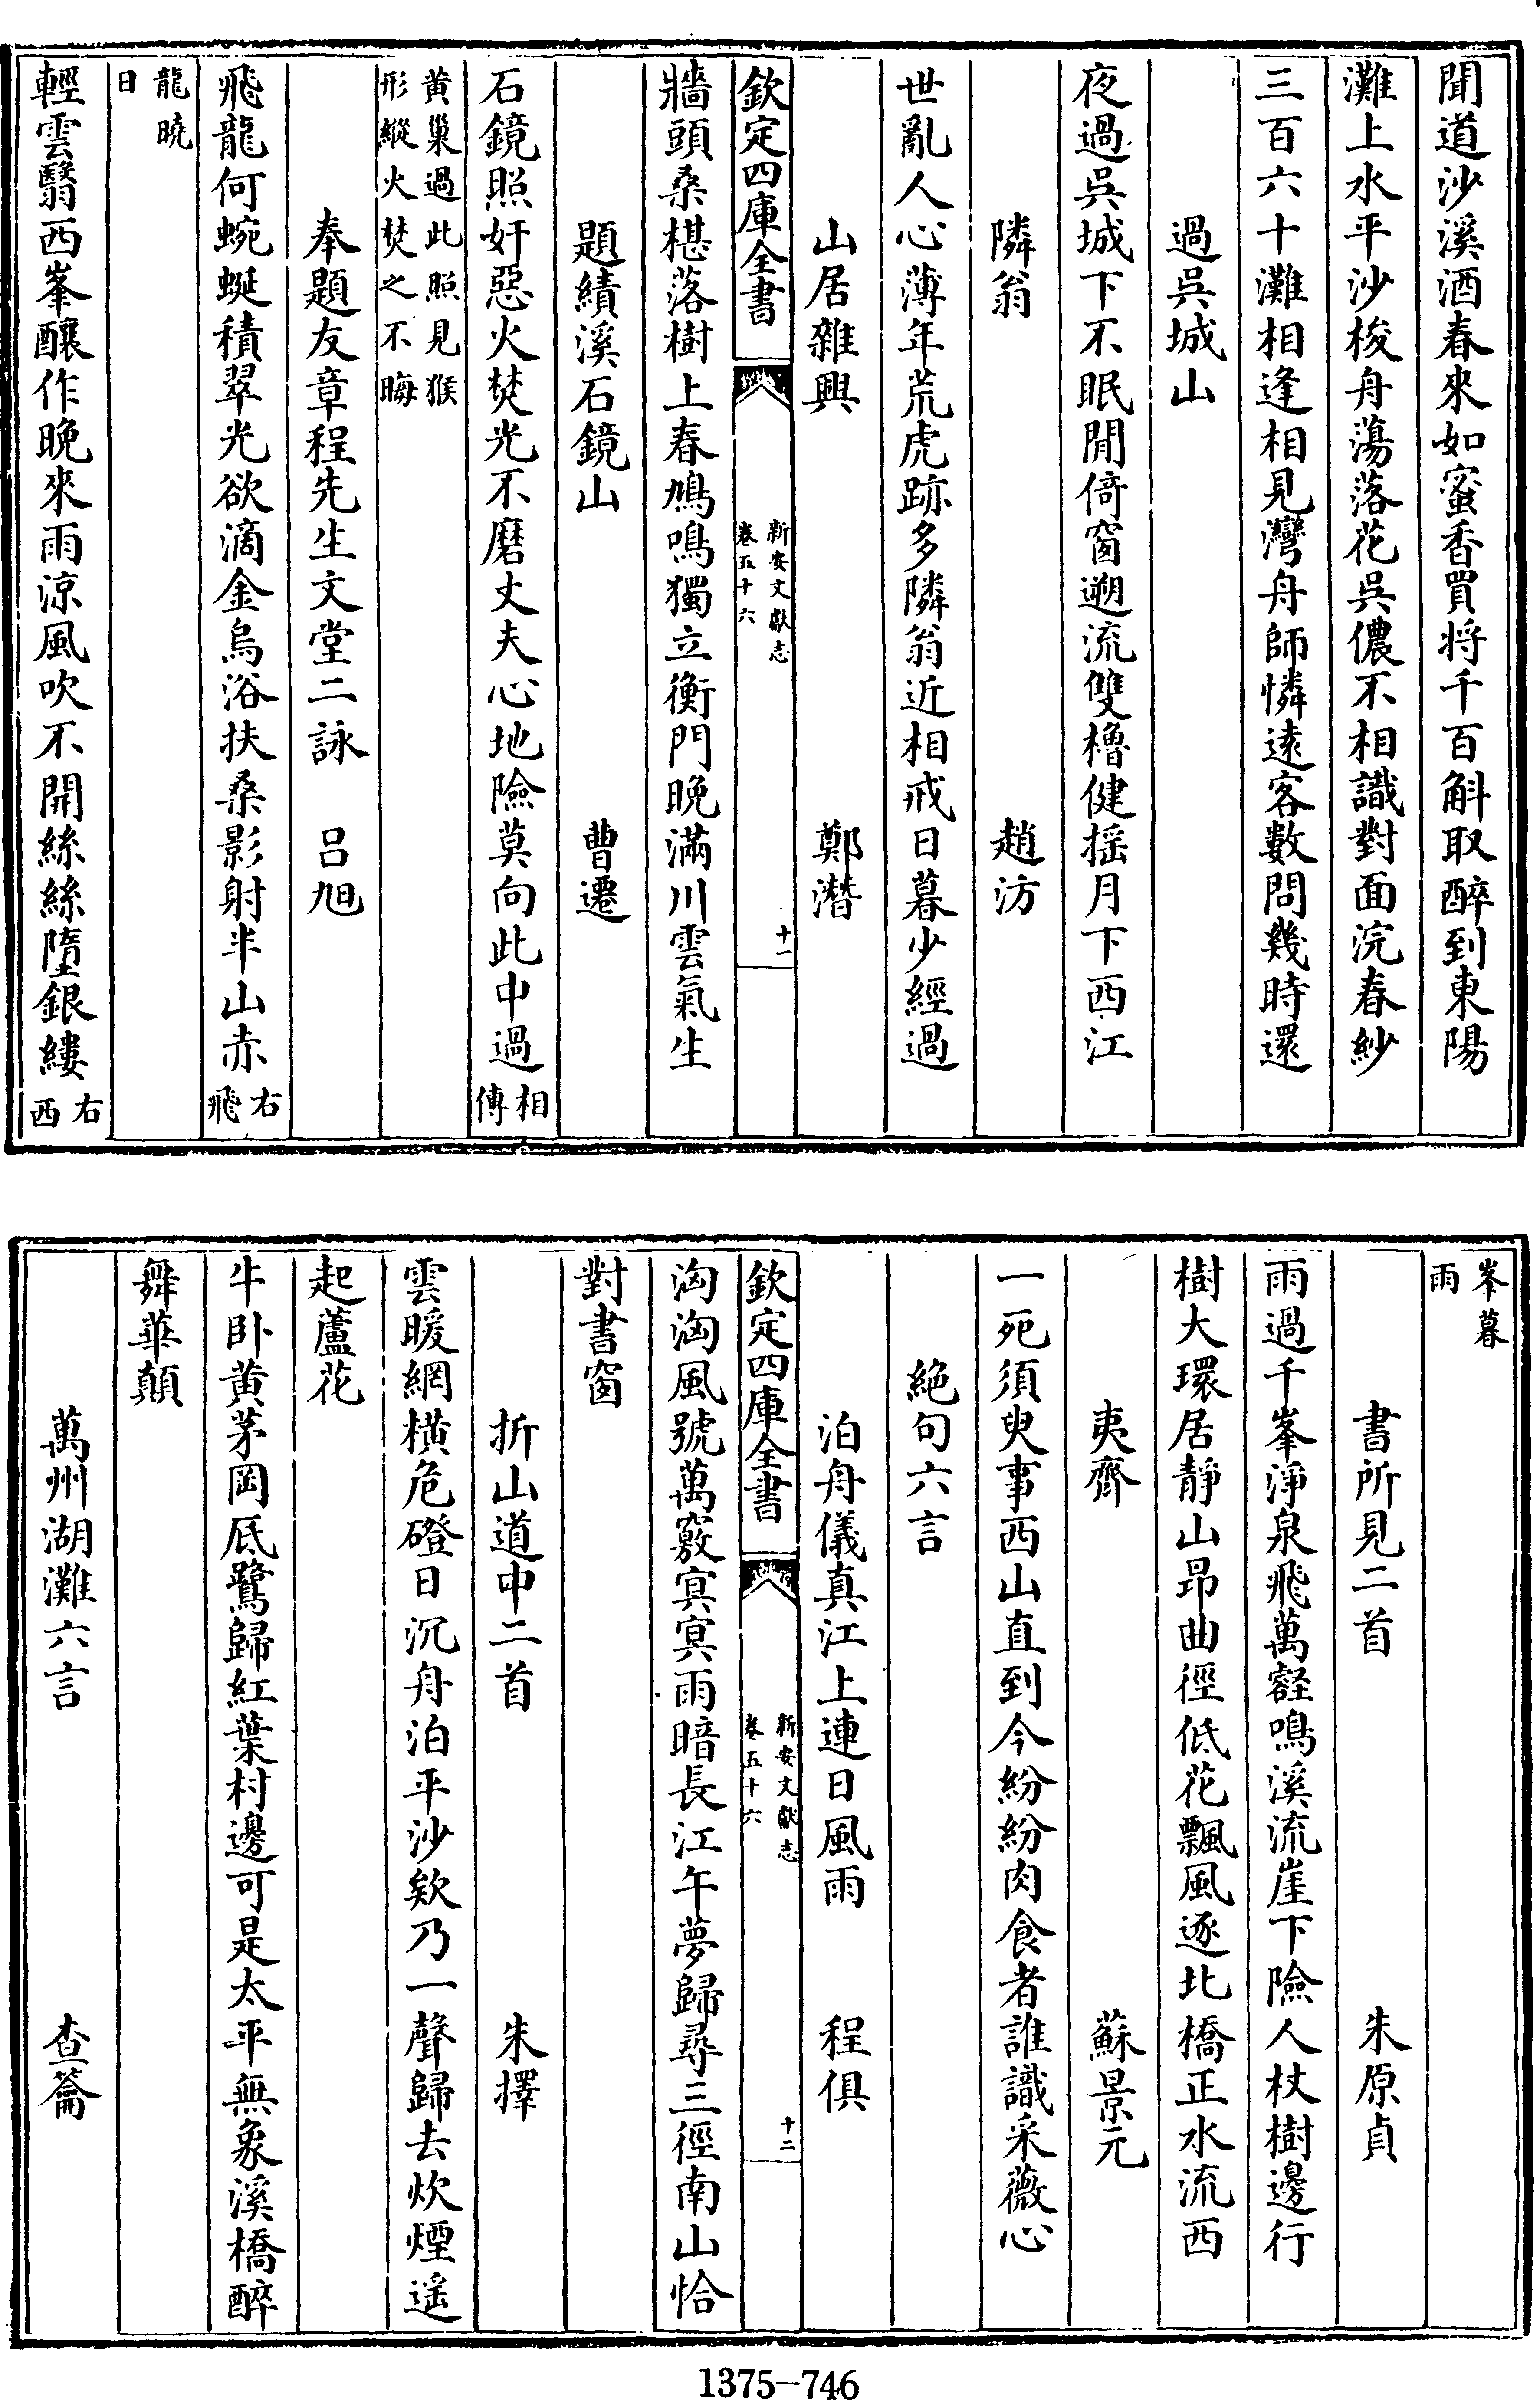 聞道沙溪酒春來如蜜香買将千百斛取醉到東陽
灘上水平沙梭舟蕩落花吳儂不相識對面浣春紗
三百六十灘相逢相見灣舟師憐逺客數問幾時還
過吳城山
夜過吳城下不眠閒倚窗遡流雙櫓健揺月下西江
隣翁　趙汸
世亂人心薄年荒虎跡多隣翁近相戒日暮少經過
山居雜興　鄭潛
欽定四庫全書　新安文獻志卷五十六　十一
牆頭桑椹落樹上春鳩鳴獨立衡門晚滿川雲氣生
題績溪石鏡山　曹遷
石鏡照奸惡火焚光不磨丈夫心地險莫向此中過相傳
黄巢過此照見猴形縱火焚之不晦
奉題友章程先生文堂二詠　呂旭
飛龍何蜿蜒積翠光欲滴金烏浴扶桑影射半山赤右飛
龍曉日
輕雲翳西峯釀作晚來雨涼風吹不開絲絲墮銀縷右西
峯暮雨
書所見二首　朱原貞
雨過千峯淨泉飛萬壑鳴溪流崖下險人杖樹邊行
樹大環居靜山昂曲徑低花飄風逐北橋正水流西
夷齊　蘇景元
一死須臾事西山直到今紛紛肉食者誰識采薇心
絶句六言
泊舟儀真江上連日風雨　程俱
欽定四庫全書　新安文獻志卷五十六　十二
洶洶風號萬竅冥冥雨暗長江午夢歸尋三徑南山恰
對書窗
折山道中二首　朱擇
雲暖網横危磴日沉舟泊平沙欸乃一聲歸去炊煙遥
起蘆花
牛卧黄茅岡底鷺歸紅葉村邊可是太平無象溪橋醉
舞華顛
萬州湖灘六言　查籥
1375-746